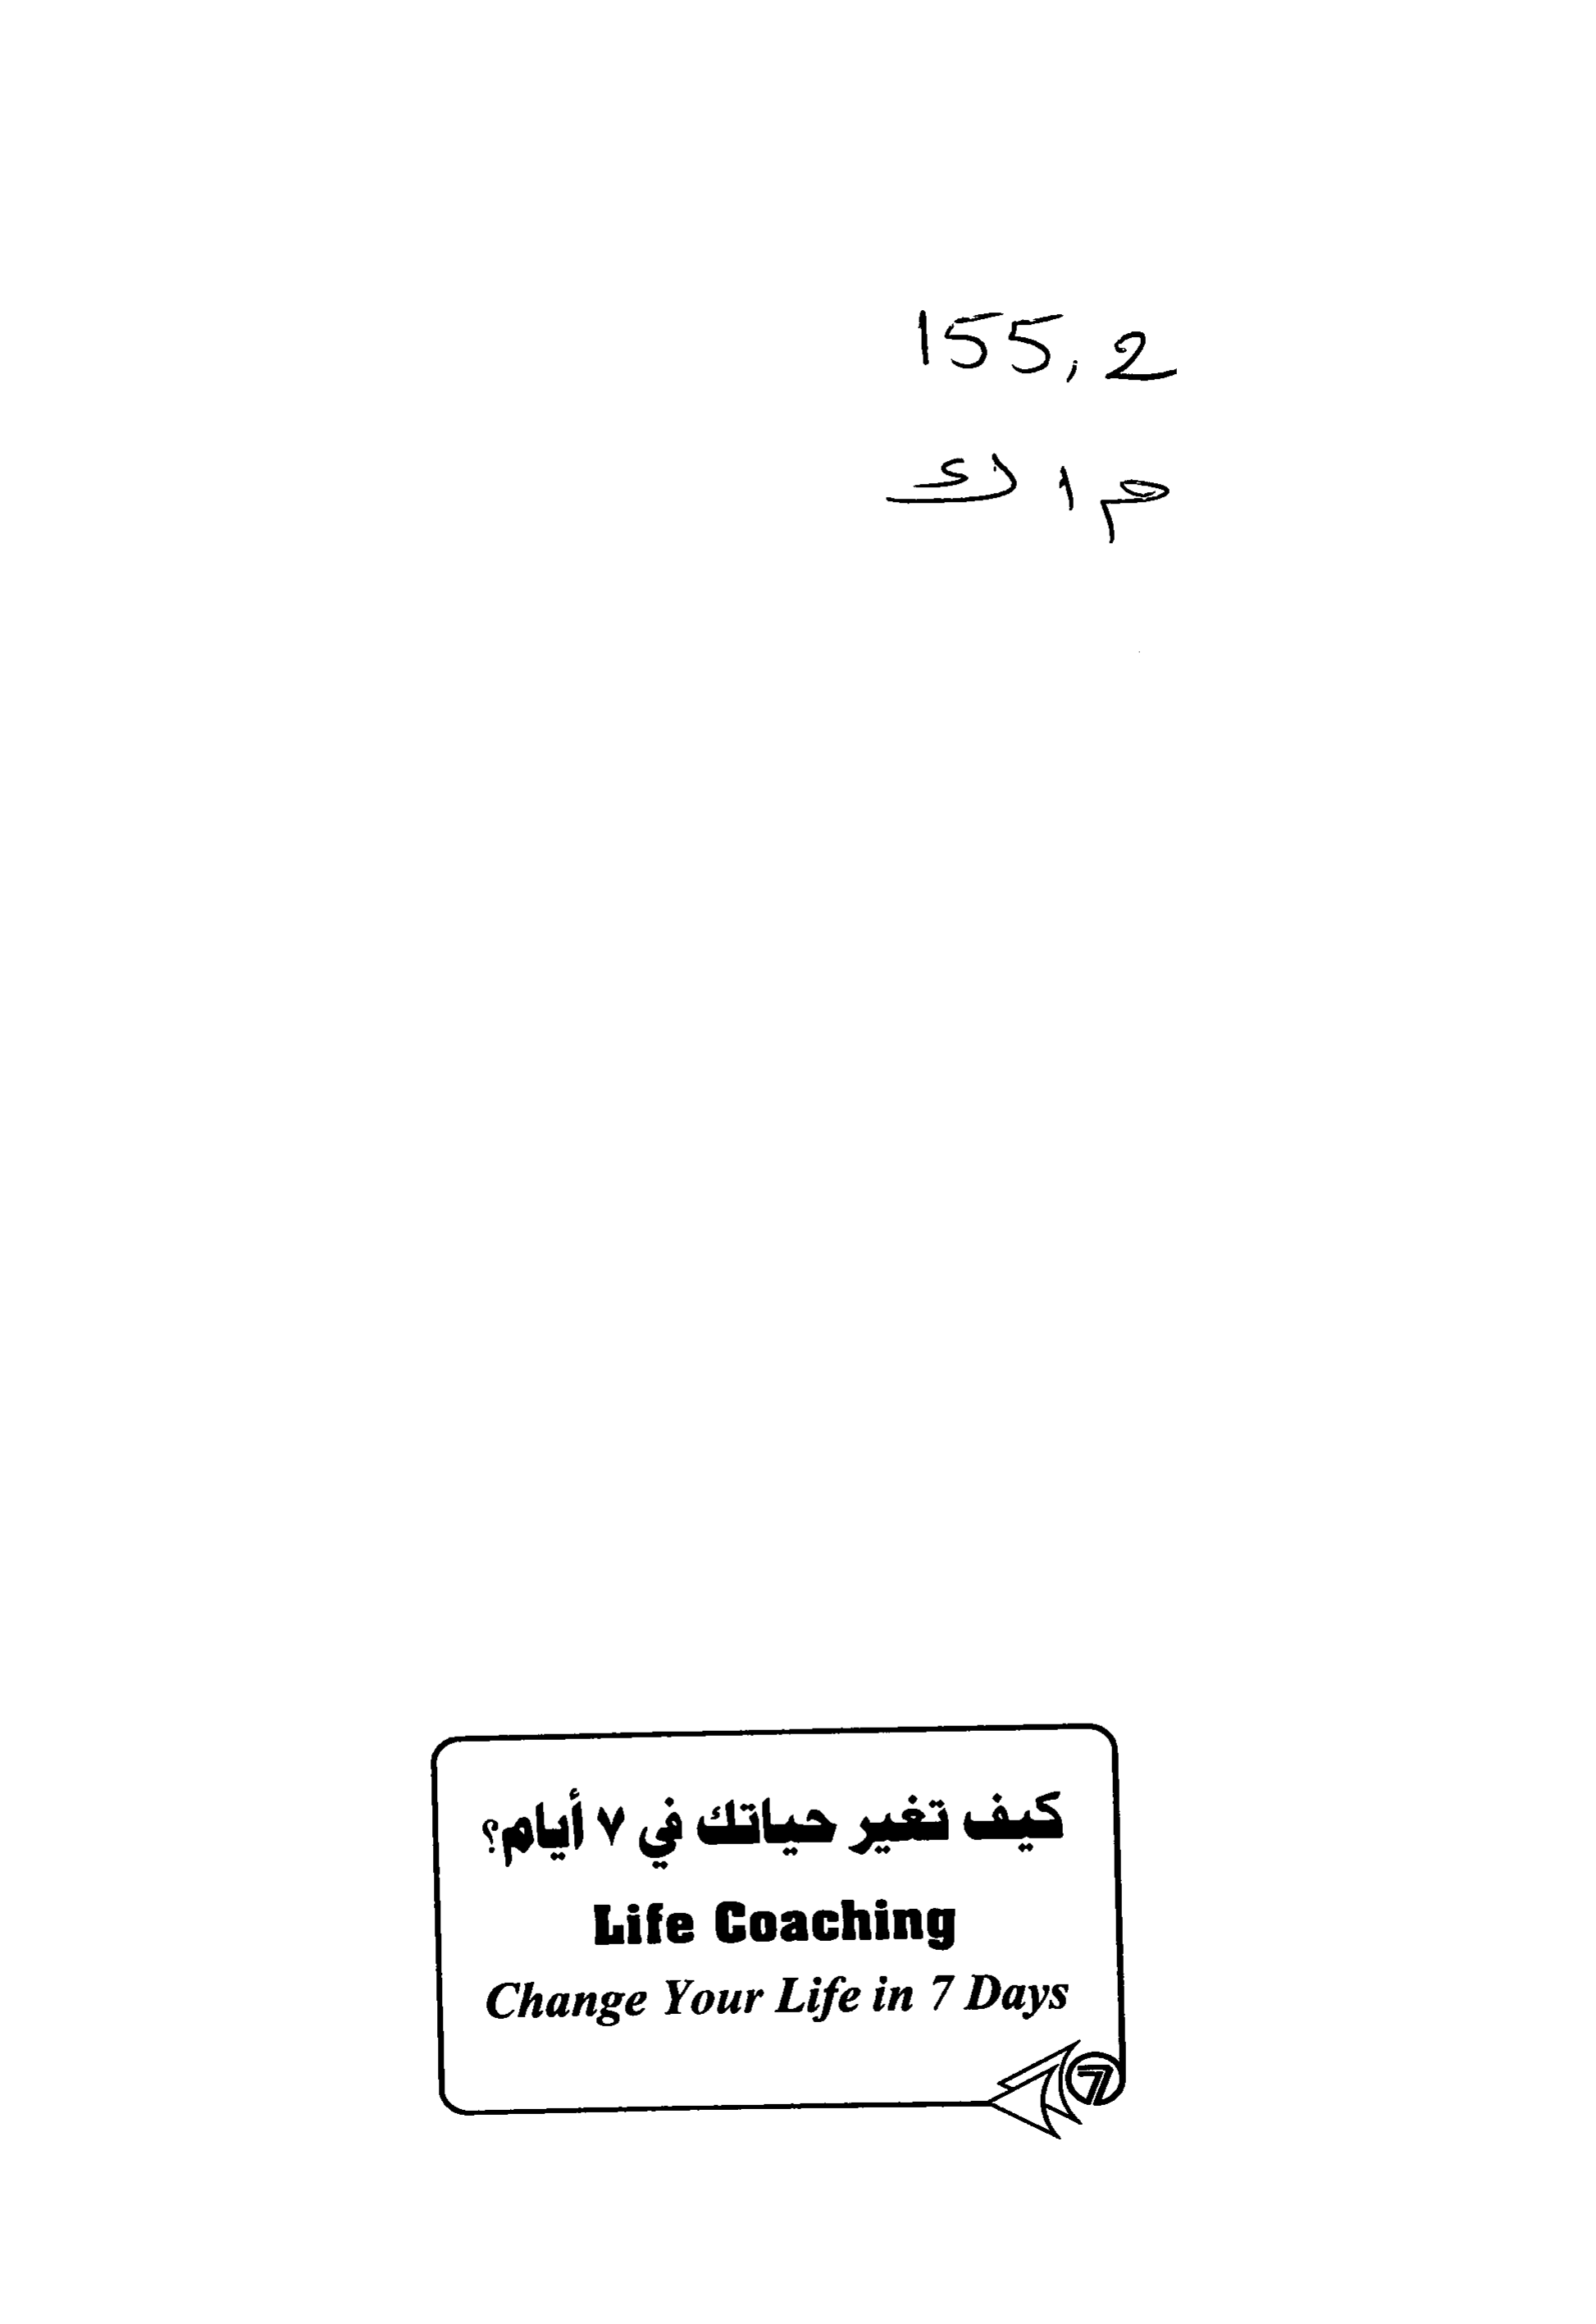 155,2
م ا ك
كيف تغير حياتك في ٧ أيام؟
Life Coaching
Change Your Life in 7 Days
7